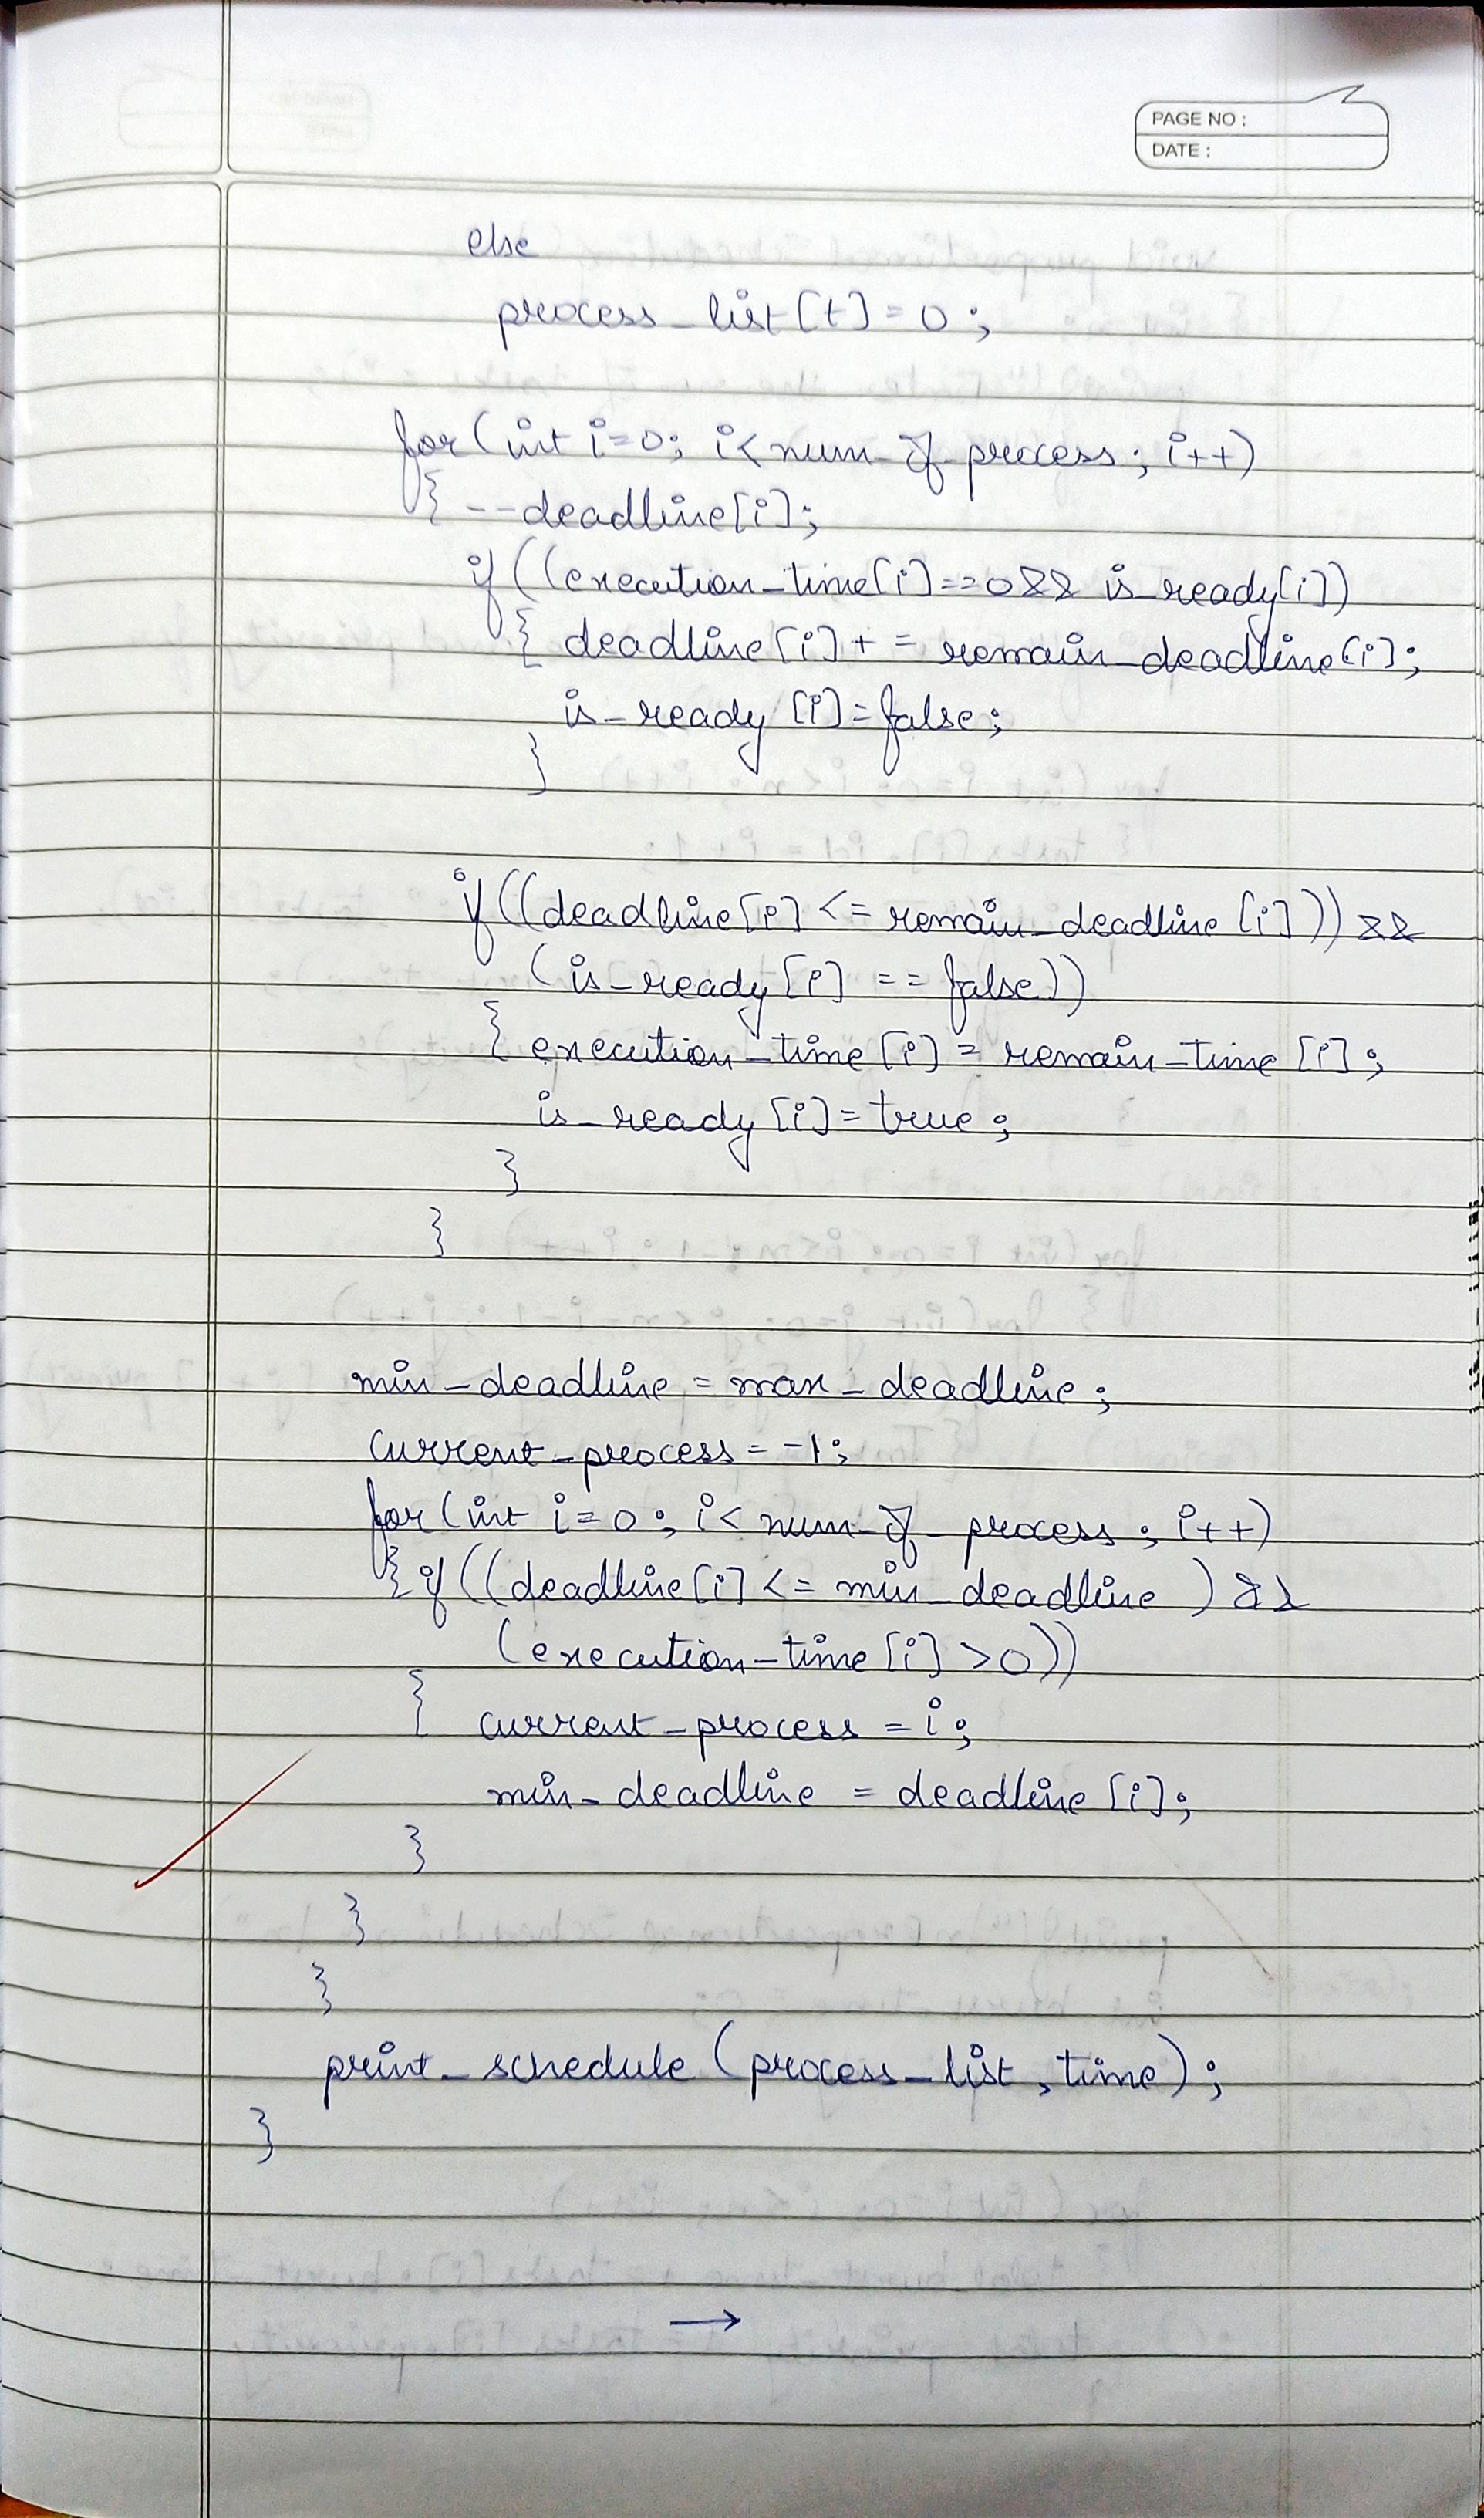 PAGE NO :
DATE :
else
process_list[t]=0;
for(int i=0; i<num_of_process; i++)
{ --deadline[i];
if((execution_time[i]==0&& is_ready[i])
{ deadline[i]+ = remain_deadline[i];
is_ready [i]=false;
}
if((deadline[i] <= remain_deadline [i])) &&
(is_ready[i] == false))
{ execution_time[i] = remain_time [i];
is_ready[i]= true;
}
}
min_deadline = max_deadline;
current_process = -1;
for(int i=0; i< num_of_process; i++)
{if((deadline[i] <= min_deadline ) &&
(execution_time[i] >0))
{ current_process = i;
min_deadline = deadline [i];
}
}
}
print_schedule (process_list, time);
}
→